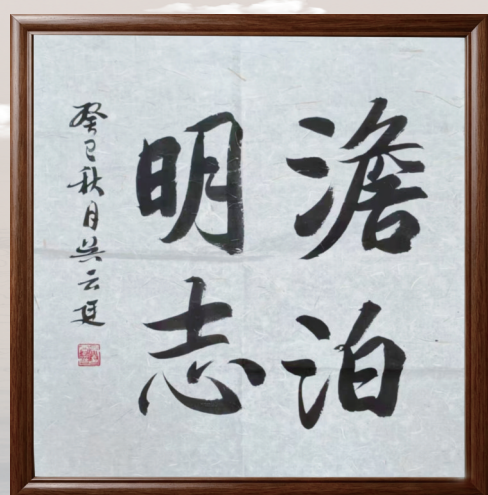 澹泊
明志
癸巳秋月吴云廷